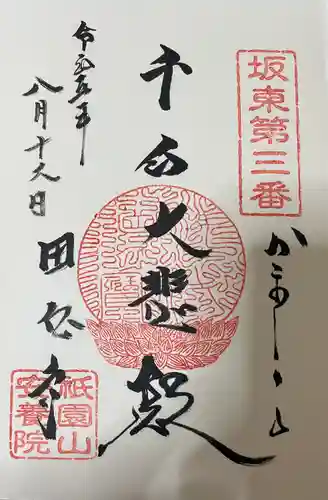 坂東第三番
かまくら
千手大悲殿
令和五年
八月十九日
田代寺
祇園山
安養院